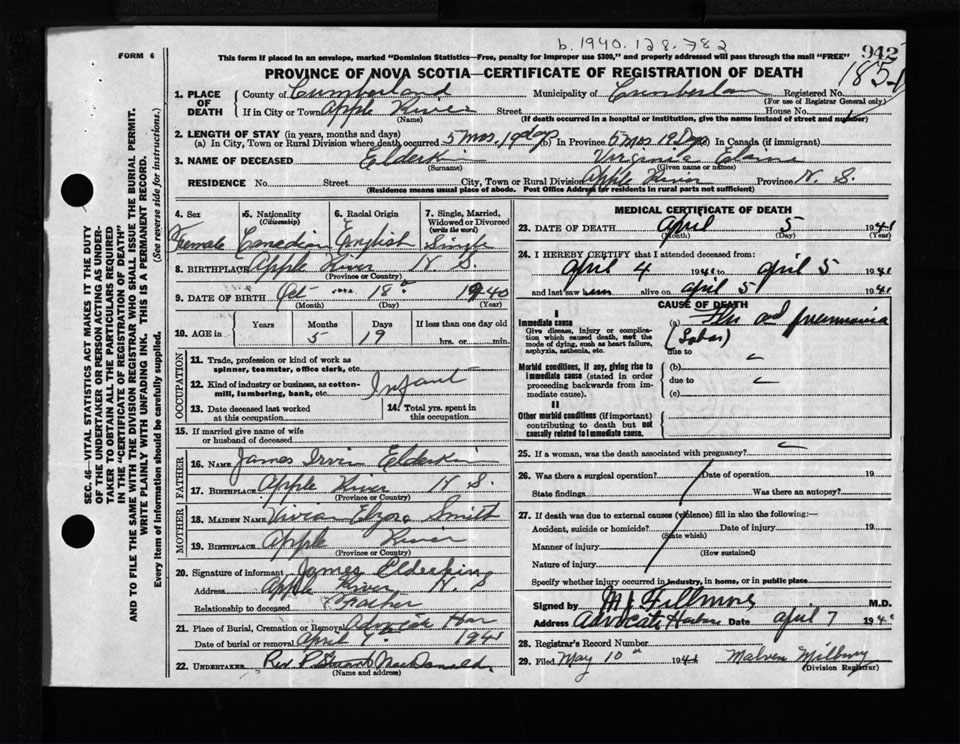 b. 1940. 128. 782
FORM 6
942
This form if placed in an envelope, marked "Dominion Statistics—Free, penalty for improper use $300," and properly addressed will pass through the mail "FREE"
PROVINCE OF NOVA SCOTIA—CERTIFICATE OF REGISTRATION OF DEATH
1. PLACE OF DEATH County of Cumberland Municipality of Cumberland Registered No.
(For use of Registrar General only)
If in City or Town Apple River Street House No.
(Name) (If death occurred in a hospital or institution, give the name instead of street and number)
2. LENGTH OF STAY (in years, months and days)
(a) In City, Town or Rural Division where death occurred 5 mos. 19 days (b) In Province 5 Mos 19 Dys (c) In Canada (if immigrant)
3. NAME OF DECEASED Elderkin Virginia Elaine
(Surname) (Given name or names)
RESIDENCE No. Street City, Town or Rural Division Apple River Province N. S.
(Residence means usual place of abode. Post Office Address for residents in rural parts not sufficient)
SEC. 46—VITAL STATISTICS ACT MAKES IT THE DUTY
OF THE UNDERTAKER OR PERSON ACTING AS UNDER-
TAKER TO OBTAIN ALL THE PARTICULARS REQUIRED
IN THE "CERTIFICATE OF REGISTRATION OF DEATH"
AND TO FILE THE SAME WITH THE DIVISION REGISTRAR WHO SHALL ISSUE THE BURIAL PERMIT.
WRITE PLAINLY WITH UNFADING INK. THIS IS A PERMANENT RECORD.
Every item of information should be carefully supplied. (See reverse side for instructions.)
4. Sex 5. Nationality (Citizenship) 6. Racial Origin 7. Single, Married, Widowed or Divorced (write the word)
Female Canadian English Single
8. BIRTHPLACE Apple River N S.
(Province or Country)
9. DATE OF BIRTH Oct 18th 1940
(Month) (Day) (Year)
10. AGE in Years Months Days If less than one day old
5 19 hrs. or min.
OCCUPATION
11. Trade, profession or kind of work as
spinner, teamster, office clerk, etc.
12. Kind of industry or business, as cotton-
mill, lumbering, bank, etc. Infant
13. Date deceased last worked at this occupation
14. Total yrs. spent in this occupation
15. If married give name of wife
or husband of deceased
FATHER
16. NAME James Irvin Elderkin
17. BIRTHPLACE Apple River N S.
(Province or Country)
MOTHER
18. MAIDEN NAME Vivian Smith
19. BIRTHPLACE Apple River
(Province or Country)
20. Signature of informant James Elderkin
Address Apple River N. S
Relationship to deceased Father
21. Place of Burial, Cremation or Removal Advocate Har
Date of burial or removal April 194
22. UNDERTAKER Rev. MacDonald
(Name and address)
MEDICAL CERTIFICATE OF DEATH
23. DATE OF DEATH April 5 1941
(Month) (Day) (Year)
24. I HEREBY CERTIFY that I attended deceased from:
April 4 1941 to April 5 1941
and last saw her alive on April 5 1941
CAUSE OF DEATH
I
Immediate cause
Give disease, injury or complica-
tion which caused death, not the
mode of dying, such as heart failure,
asphyxia, asthenia, etc.
(a) Flu and pneumonia
(Lobar)
due to
Morbid conditions, if any, giving rise to
immediate cause (stated in order
proceeding backwards from im-
mediate cause).
(b)
due to
(c)
II
Other morbid conditions (if important)
contributing to death but not
causally related to immediate cause.
25. If a woman, was the death associated with pregnancy?
26. Was there a surgical operation? Date of operation 19
State findings Was there an autopsy?
27. If death was due to external causes (violence) fill in also the following:—
Accident, suicide or homicide? Date of injury 19
(State which)
Manner of injury
(How sustained)
Nature of injury
Specify whether injury occurred in industry, in home, or in public place
Signed by M J Fillmore M.D.
Address Advocate Harbour Date April 7 194
28. Registrar's Record Number
29. Filed May 10th 1941 Malven Milbury
(Division Registrar)